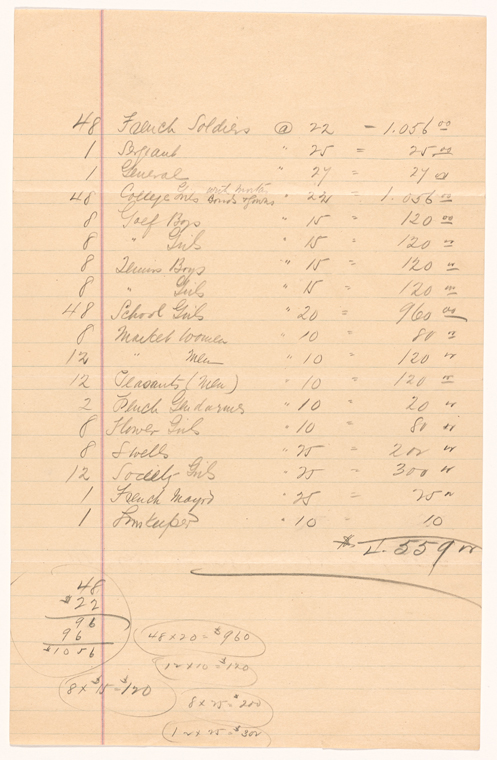 48 French Soldiers @ 22 = 1.056 00
1 Sergeant " 25 = 25 00
1 General " 27 = 27 00
48 College Girls " 22 = 1.056 00
8 Golf Boys " 15 = 120 00
8 " Girls " 15 = 120 00
8 Tennis Boys " 15 = 120 00
8 " Girls " 15 = 120 00
48 School Girls " 20 = 960 00
8 Market Women " 10 = 80 00
12 " Men " 10 = 120 00
12 Peasants (Men) " 10 = 120 00
2 French Gendarmes " 10 = 20 00
8 Flower Girls " 10 = 80 00
8 Swells " 25 = 200 00
12 Society Girls " 25 = 300 00
1 French Mayor " 25 = 25 00
1 Innkeeper " 10 = 10
$ 4.559 00
48
$22
96
96
$1056
48 x 20 = $960
12 x 10 = $120
8 x $15 = $120
8 x 25 = $200
12 x 25 = $300